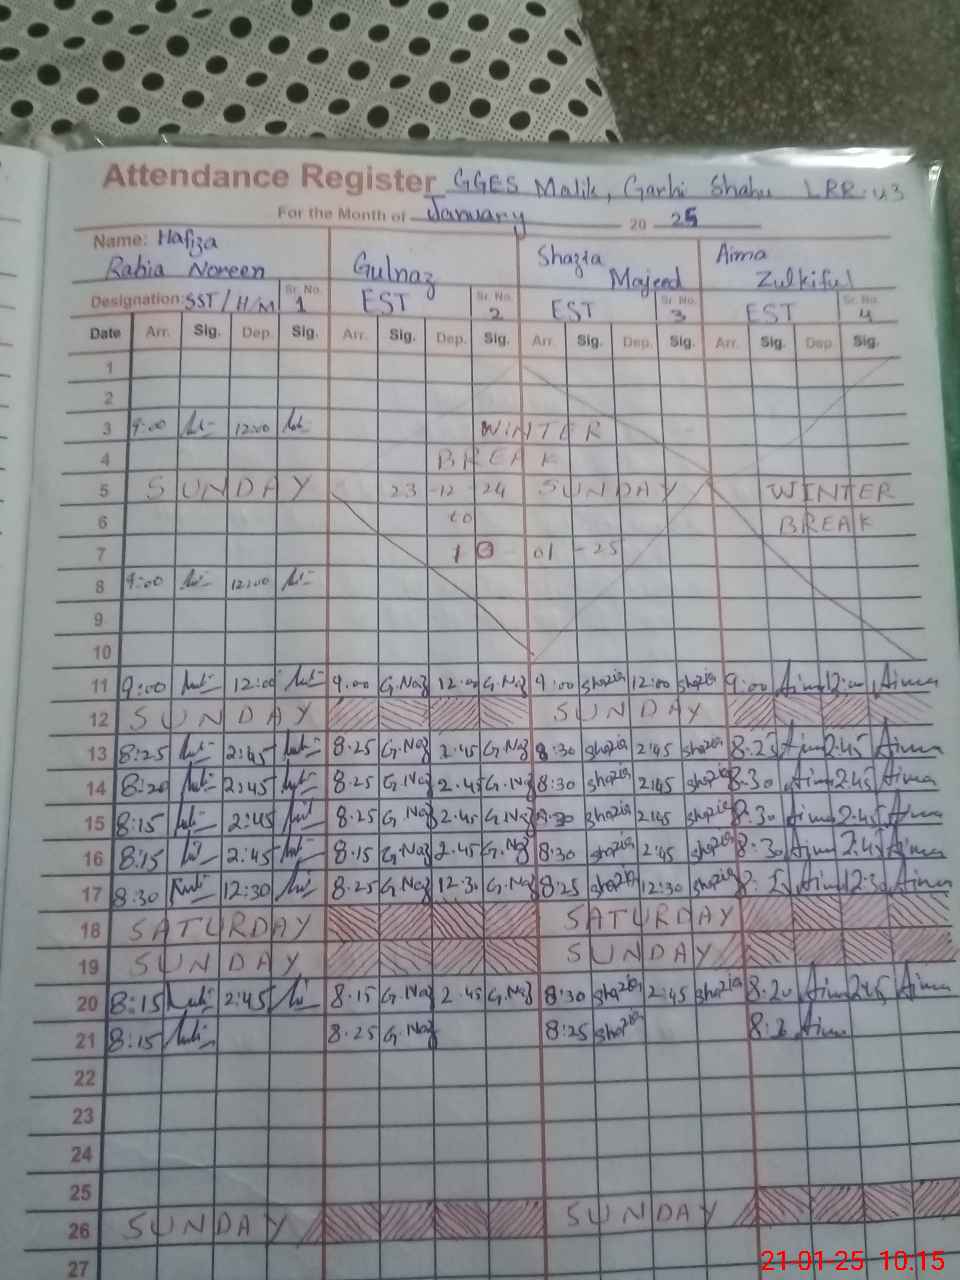 Attendance Register GGES Malik, Garhi Shahu LRR-43
For the Month of January 2025
Name: Hafiza Rabia Noreen Gulnaz Shazia Majeed Aima Zulkiful
Designation: SST/H/M Sr. No. 1 EST Sr. No. 2 EST Sr. No. 3 EST Sr. No. 4
Date Arr. Sig. Dep. Sig. Arr. Sig. Dep. Sig. Arr. Sig. Dep. Sig. Arr. Sig. Dep. Sig.
1
2
3 9:00 12:00 WINTER
4 BREAK
5 SUNDAY 23-12-24 SUNDAY WINTER
6 to BREAK
7 10-01-25
8 9:00 12:00
9
10
11 9:00 12:00 9.00 G.Naz 12.00 G.Naz 9:00 Shazia 12:00 Shazia 9:00 Aima 12:00 Aima
12 SUNDAY SUNDAY
13 8:25 2:45 8.25 G.Naz 2.45 G.Naz 8:30 Shazia 2:45 Shazia 8.25 Aima 2.45 Aima
14 8:20 2:45 8.25 G.Naz 2.45 G.Naz 8:30 Shazia 2:45 Shazia 8.30 Aima 2.45 Aima
15 8:15 2:45 8.25 G.Naz 2.45 G.Naz 8:30 Shazia 2:45 Shazia 8.30 Aima 2.45 Aima
16 8:15 2:45 8.15 G.Naz 2.45 G.Naz 8:30 Shazia 2:45 Shazia 8:30 Aima 2:45 Aima
17 8:30 12:30 8.25 G.Naz 12.30 G.Naz 8:25 Shazia 12:30 Shazia Aima 12:30 Aima
18 SATURDAY SATURDAY
19 SUNDAY SUNDAY
20 8:15 2:45 8.15 G.Naz 2.45 G.Naz 8:30 Shazia 2:45 Shazia 8.20 Aima 2.45 Aima
21 8:15 8.25 G.Naz 8:25 Shazia Aima
22
23
24
25
26 SUNDAY SUNDAY
27
21-01-25 10:15